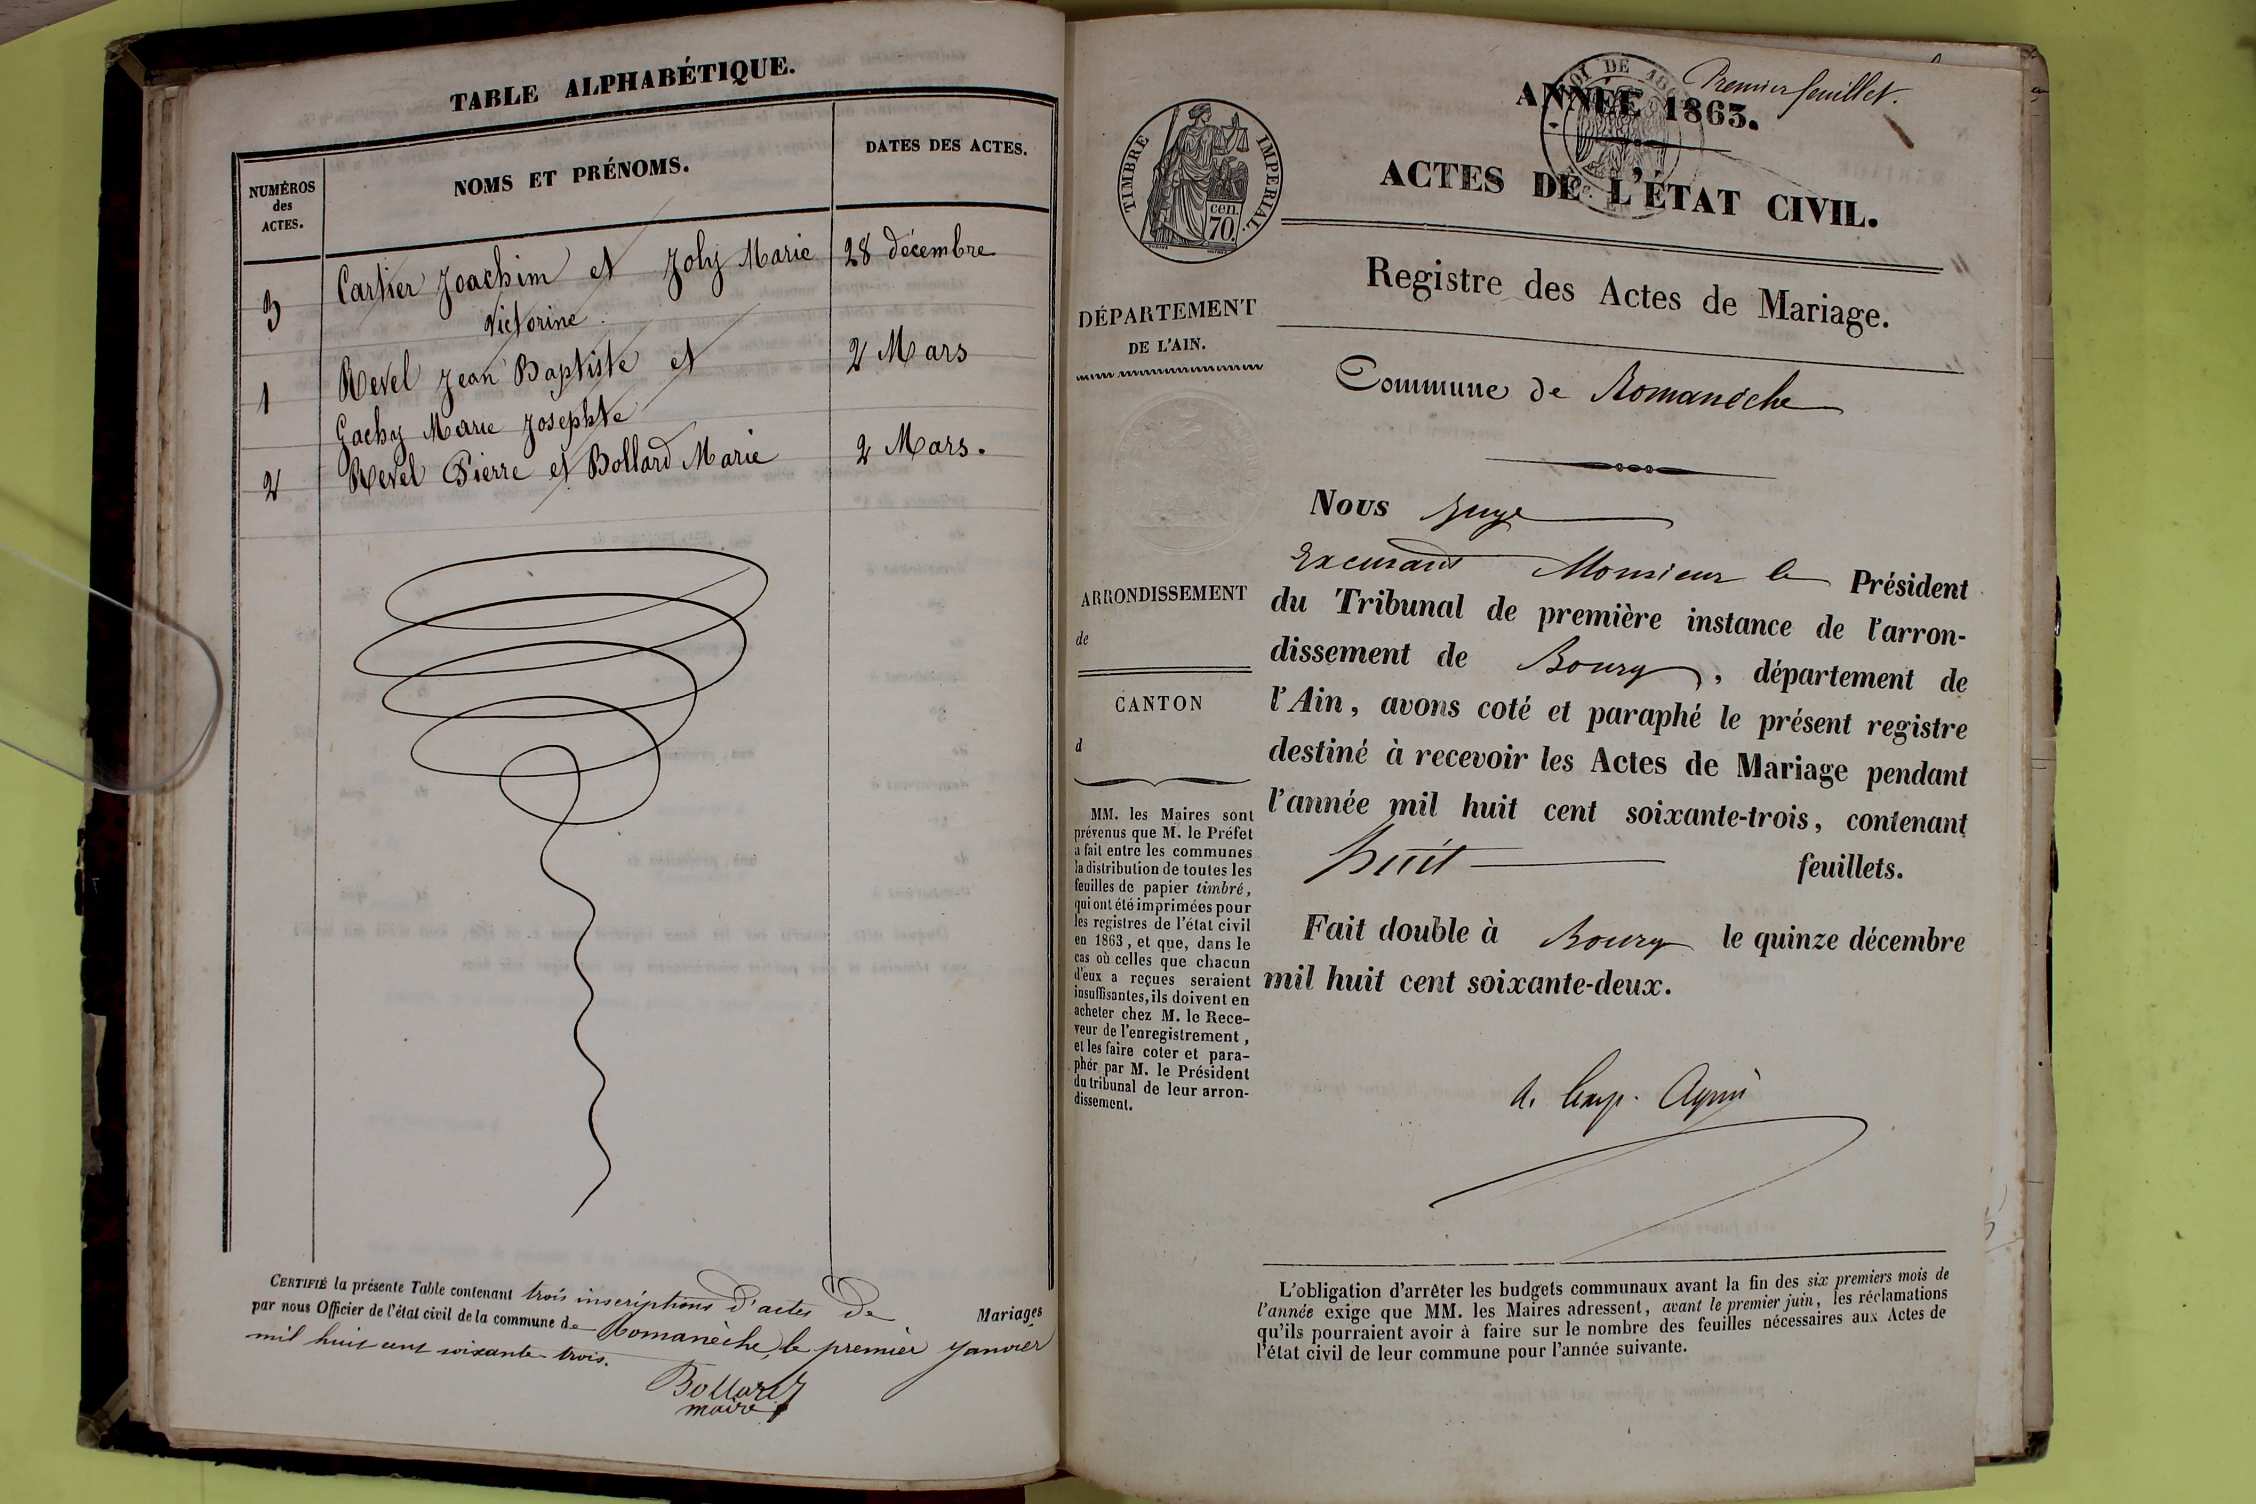 TABLE ALPHABÉTIQUE.
NUMÉROS
des
ACTES.
NOMS ET PRÉNOMS.
DATES DES ACTES.
3 Cartier Joachim et Joly Marie 28 décembre
Victorine
1 Revel Jean Baptiste et 2 Mars
Gachy Marie Josephte
2 Revel Pierre et Bollard Marie 2 Mars.
CERTIFIÉ la présente Table contenant trois inscriptions d'actes de Mariages
par nous Officier de l'état civil de la commune de Romanèche, le premier Janvier
mil huit cent soixante-trois.
Bollard
maire
Premier feuillet.
ANNÉE 1863.
LOI DE
TIMBRE IMPERIAL.
cen.
70.
ACTES DE L'ÉTAT CIVIL.
Registre des Actes de Mariage.
DÉPARTEMENT
DE L'AIN.
Commune de Romanèche
Nous Juge
Excusant Monsieur le Président
ARRONDISSEMENT
de
CANTON
d
du Tribunal de première instance de l'arron-
dissement de Bourg, département de
l'Ain, avons coté et paraphé le présent registre
destiné à recevoir les Actes de Mariage pendant
l'année mil huit cent soixante-trois, contenant
huit feuillets.
Fait double à Bourg le quinze décembre
mil huit cent soixante-deux.
MM. les Maires sont
prévenus que M. le Préfet
a fait entre les communes
la distribution de toutes les
feuilles de papier timbré,
qui ont été imprimées pour
les registres de l'état civil
en 1863, et que, dans le
cas où celles que chacun
d'eux a reçues seraient
insuffisantes, ils doivent en
acheter chez M. le Rece-
veur de l'enregistrement,
et les faire coter et para-
phér par M. le Président
du tribunal de leur arron-
dissement.
L'obligation d'arrêter les budgets communaux avant la fin des six premiers mois de
l'année exige que MM. les Maires adressent, avant le premier juin, les réclamations
qu'ils pourraient avoir à faire sur le nombre des feuilles nécessaires aux Actes de
l'état civil de leur commune pour l'année suivante.